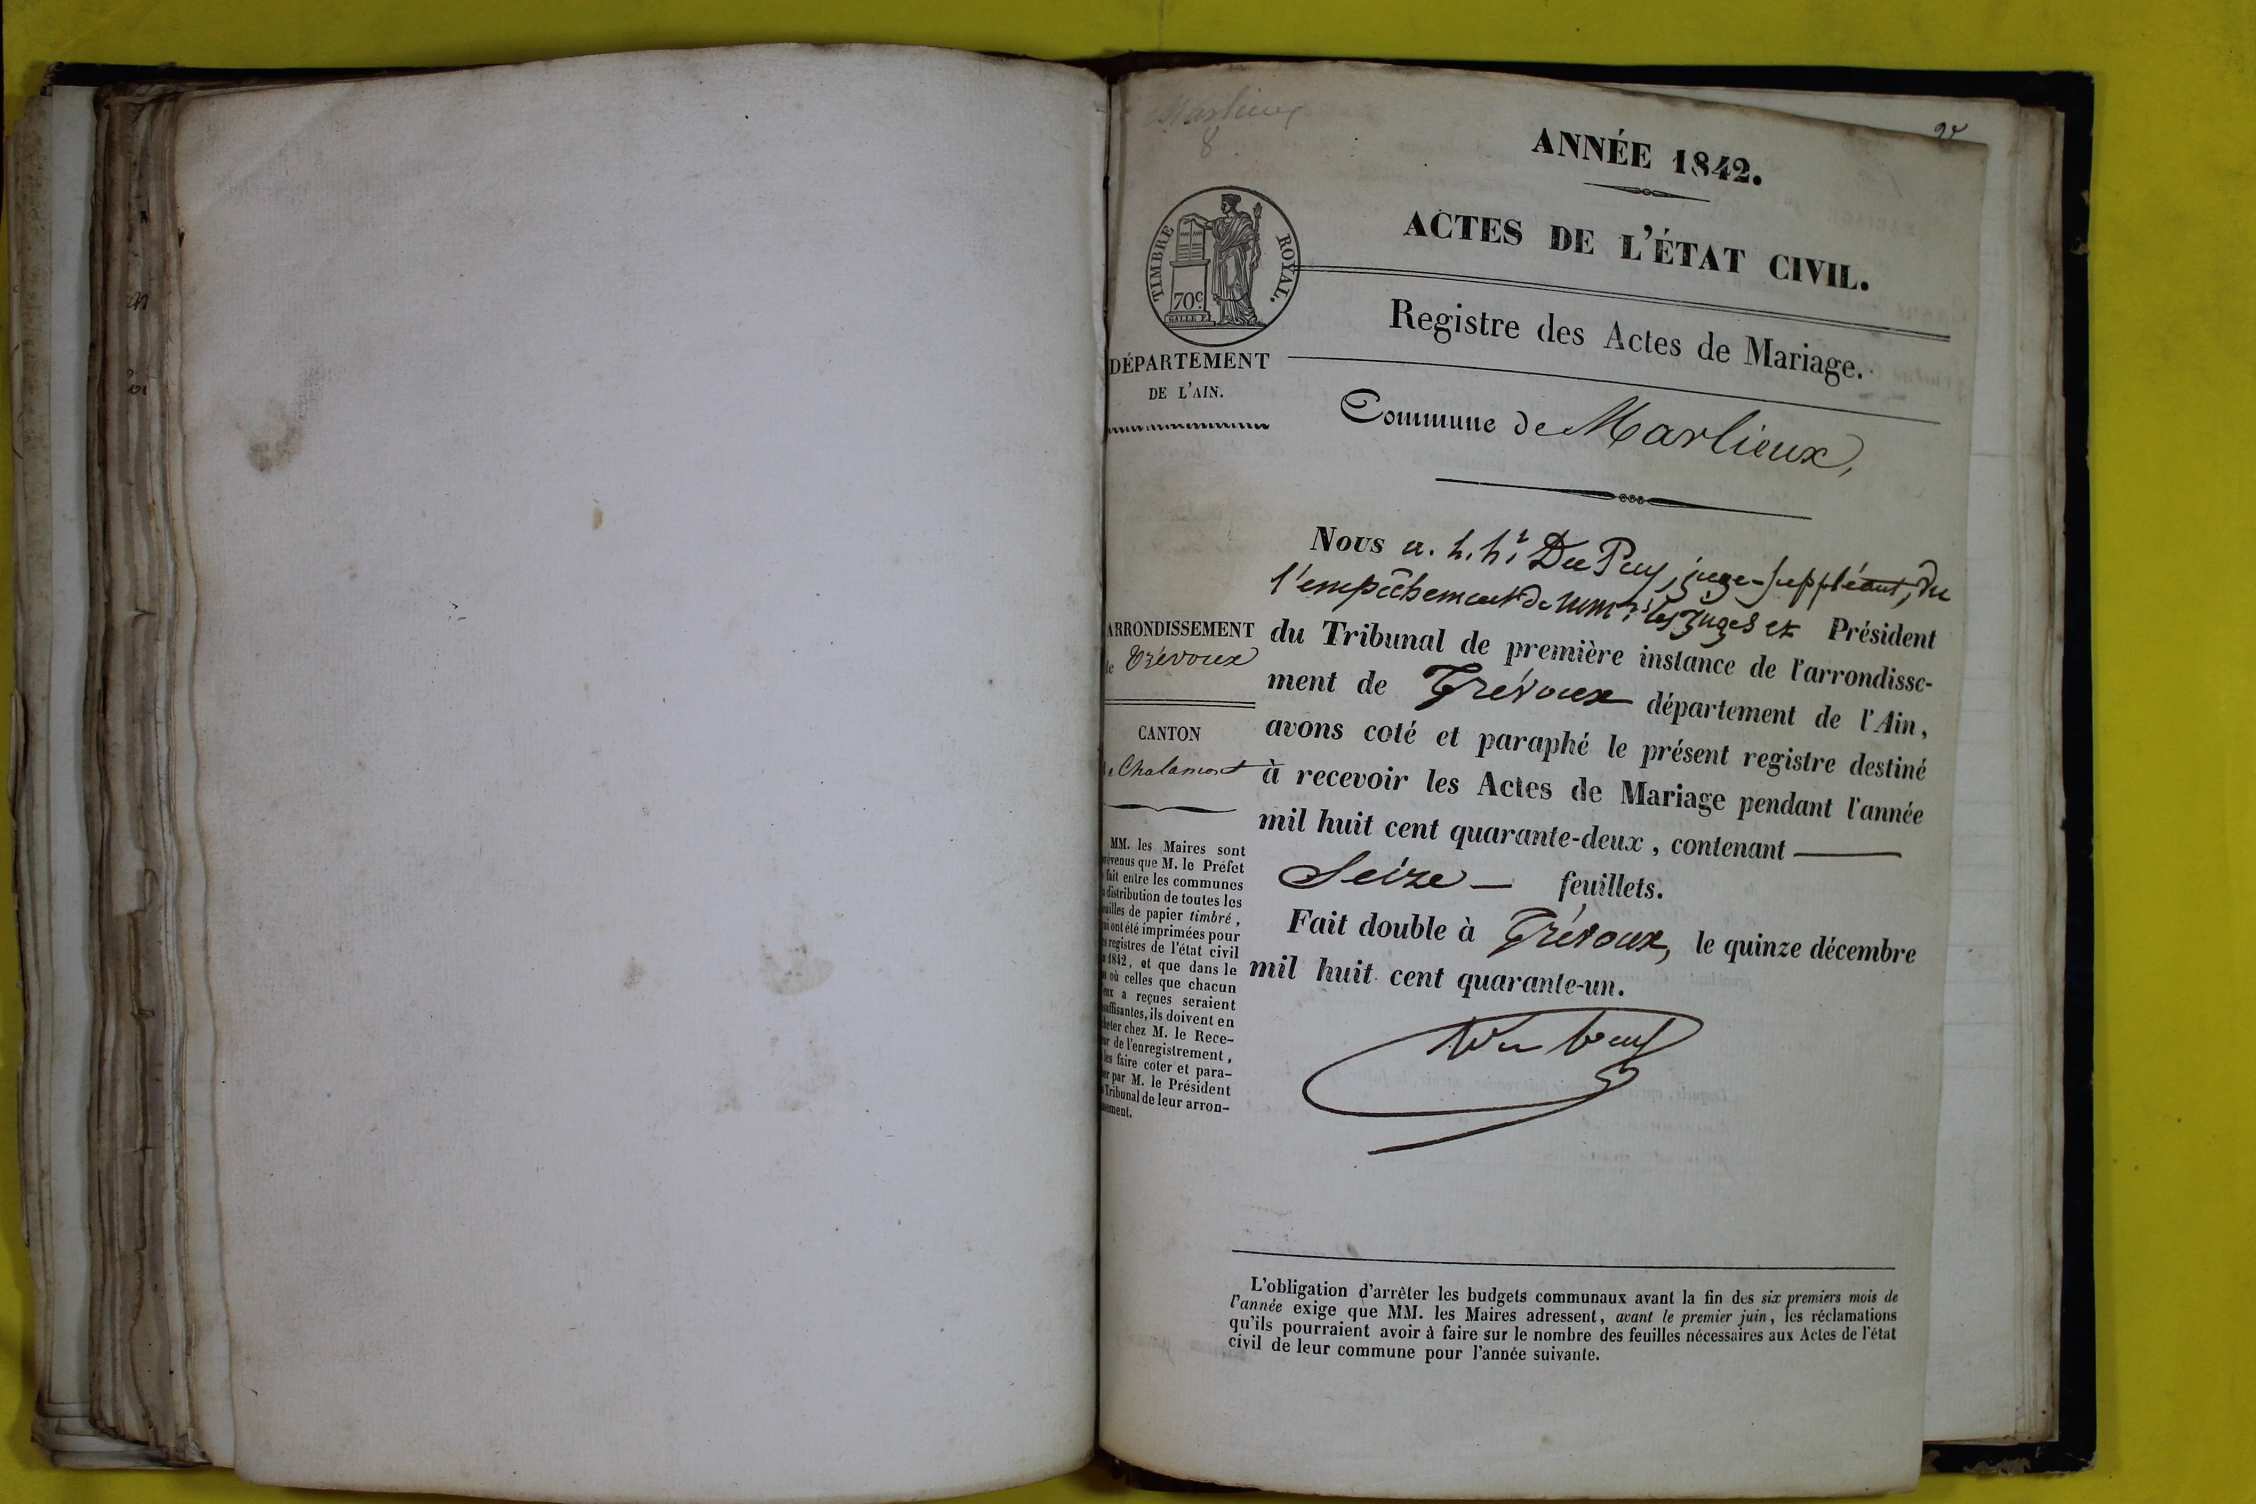 Marlieux
8
ANNÉE 1842.
ACTES DE L'ÉTAT CIVIL.
TIMBRE ROYAL.
70c
Registre des Actes de Mariage.
DÉPARTEMENT
DE L'AIN.
Commune de Marlieux,
ARRONDISSEMENT
de Trévoux
CANTON
de Chalamont
MM. les Maires sont
prévenus que M. le Préfet
fait entre les communes
distribution de toutes les
feuilles de papier timbré,
qui ont été imprimées pour
registres de l'état civil
1842, et que dans le
où celles que chacun
eux a reçues seraient
insuffisantes, ils doivent en
acheter chez M. le Rece-
veur de l'enregistrement,
les faire coter et para-
pher par M. le Président
Tribunal de leur arron-
dissement.
Nous a. h. hi Du Puy, juge-suppléant, Vu
l'empêchement de MMrs les Juges et Président
du Tribunal de première instance de l'arrondisse-
ment de Trévoux département de l'Ain,
avons coté et paraphé le présent registre destiné
à recevoir les Actes de Mariage pendant l'année
mil huit cent quarante-deux, contenant
Seize feuillets.
Fait double à Trévoux, le quinze décembre
mil huit cent quarante-un.
L'obligation d'arrêter les budgets communaux avant la fin des six premiers mois de
l'année exige que MM. les Maires adressent, avant le premier juin, les réclamations
qu'ils pourraient avoir à faire sur le nombre des feuilles nécessaires aux Actes de l'état
civil de leur commune pour l'année suivante.